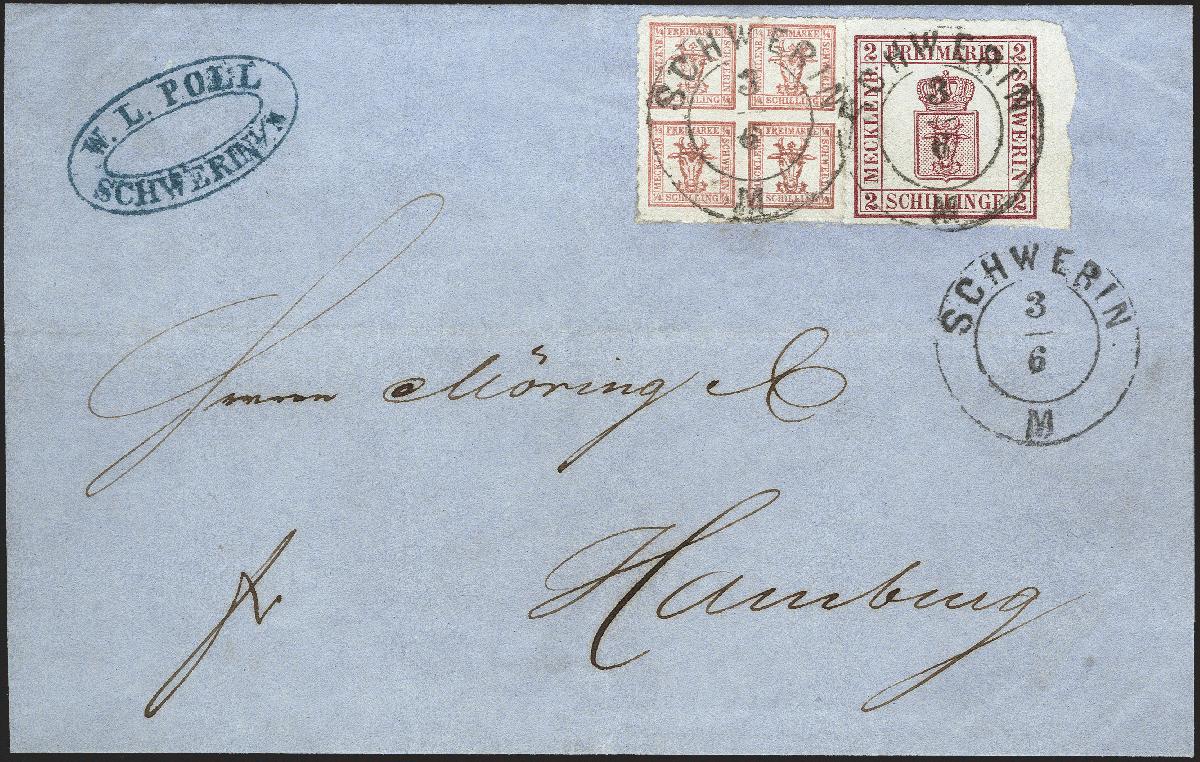 W. L. POLL
SCHWERIN i/M
FREIMARKE FREIMARKE
SCHILLING SCHILLING
FREIMARKE FREIMARKE
SCHILLING SCHILLING
2 FREIMARKE 2
MECKLENB. SCHWERIN
2 SCHILLINGE 2
SCHWERIN
3
6
M
SCHWERIN
3
6
M
SCHWERIN
3
6
M
Herren Möring &
fr
Hamburg